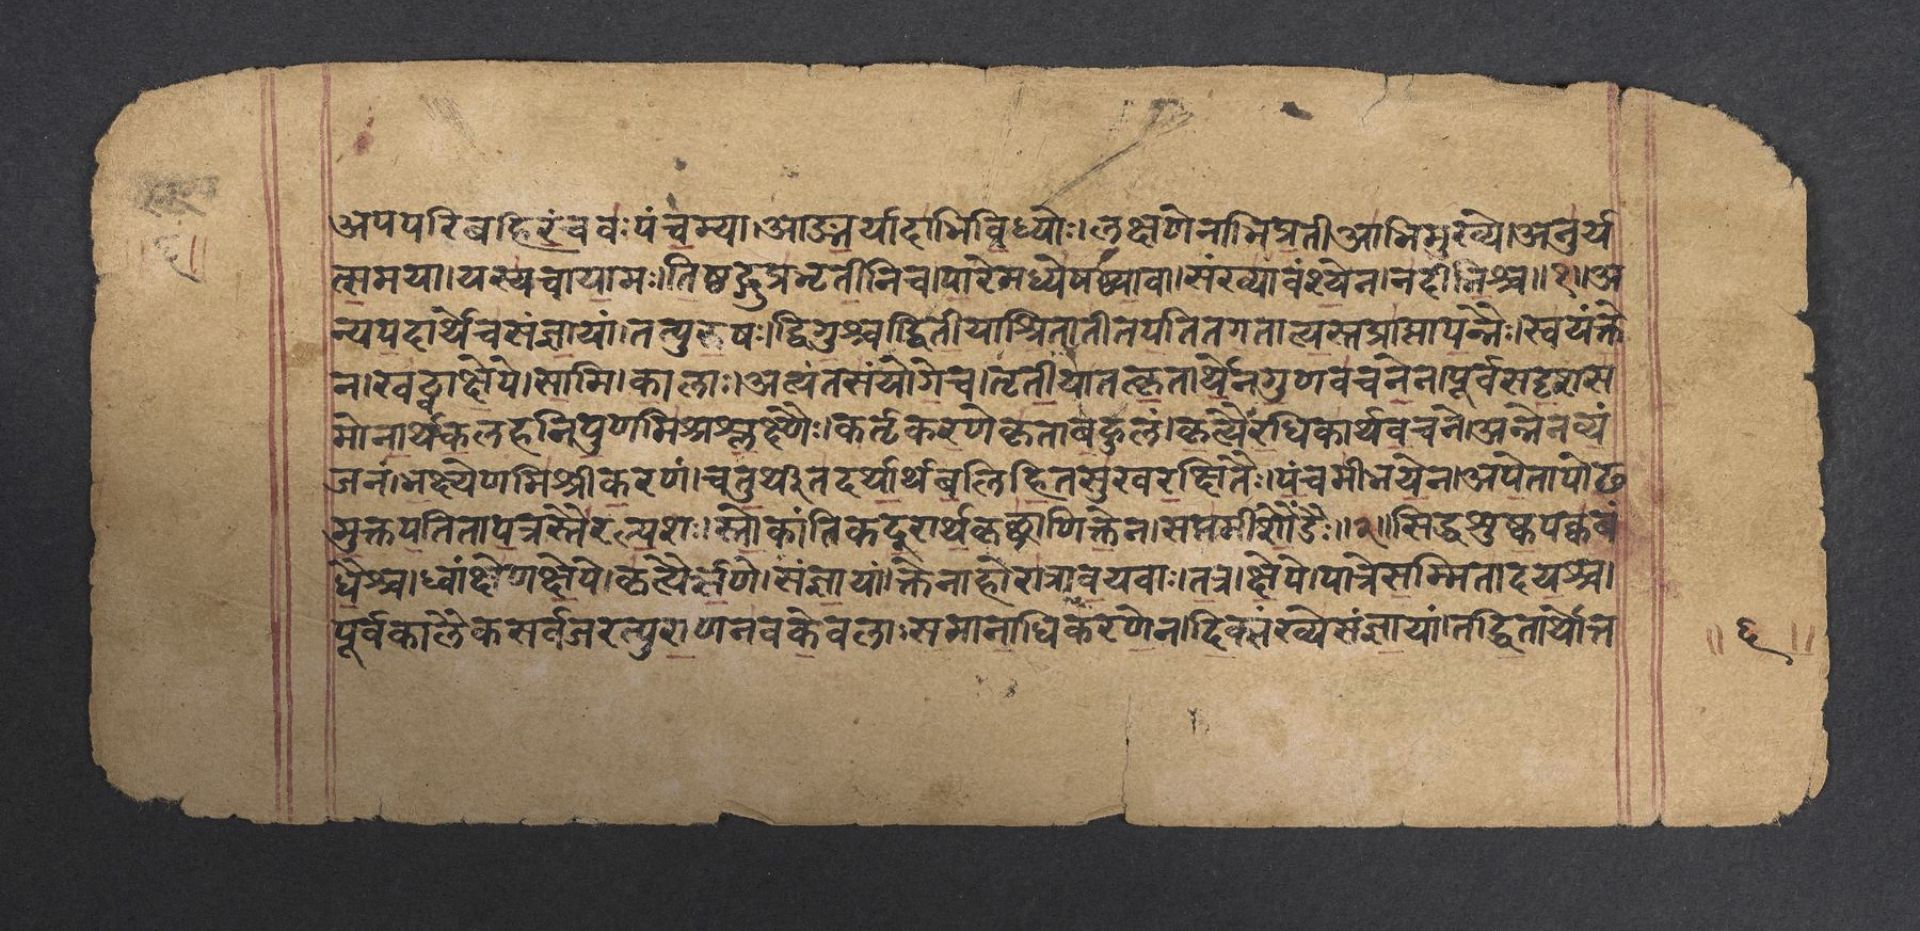 अपपरिबहिरंचवः पंचम्या।आङ्मर्यादाभिविध्योः।लक्षणेनाभिप्रतीआभिमुख्ये।अनुर्य
त्समया।यस्यचायामः।तिष्ठद्गुप्रभृतीनिच।पारेमध्येषष्ठ्यावा।संख्यावंश्येन।नदीभिश्च॥१॥अ
न्यपदार्थेचसंज्ञायां।तत्पुरुषः।द्विगुश्च।द्वितीयाश्रितातीतपतितगतात्यस्तप्राप्तापन्नैः।स्वयंक्ते
न।खट्वाक्षेपे।सामि।कालाः।अत्यंतसंयोगेच।तृतीयातत्कृतार्थेनगुणवचनेन।पूर्वसदृशस
मोनार्थकलहनिपुणमिश्रश्लक्ष्णैः।कर्तृकरणेकृताबहुलं।कृत्यैरधिकार्थवचने।अन्नेनव्यं
जनं।भक्ष्येणमिश्रीकरणं।चतुर्थीतदर्थार्थबलिहितसुखरक्षितैः।पंचमीभयेन।अपेतापोढ
मुक्तपतितापत्रस्तैरल्पशः।स्तोकांतिकदूरार्थकृछ्राणिक्तेन।सप्तमीशौंडैः॥२॥सिद्धशुष्कपक्वबं
धैश्च।ध्वांक्षेणक्षेपे।कृत्यैर्ऋणे।संज्ञायां।क्तेनाहोरात्रावयवाः।तत्र।क्षेपे।पात्रेसम्मितादयश्च।
पूर्वकालैकसर्वजरत्पुराणनवकेवलाःसमानाधिकरणेन।दिक्संख्येसंज्ञायां।तद्धितार्थोत्त
॥६॥
॥६॥